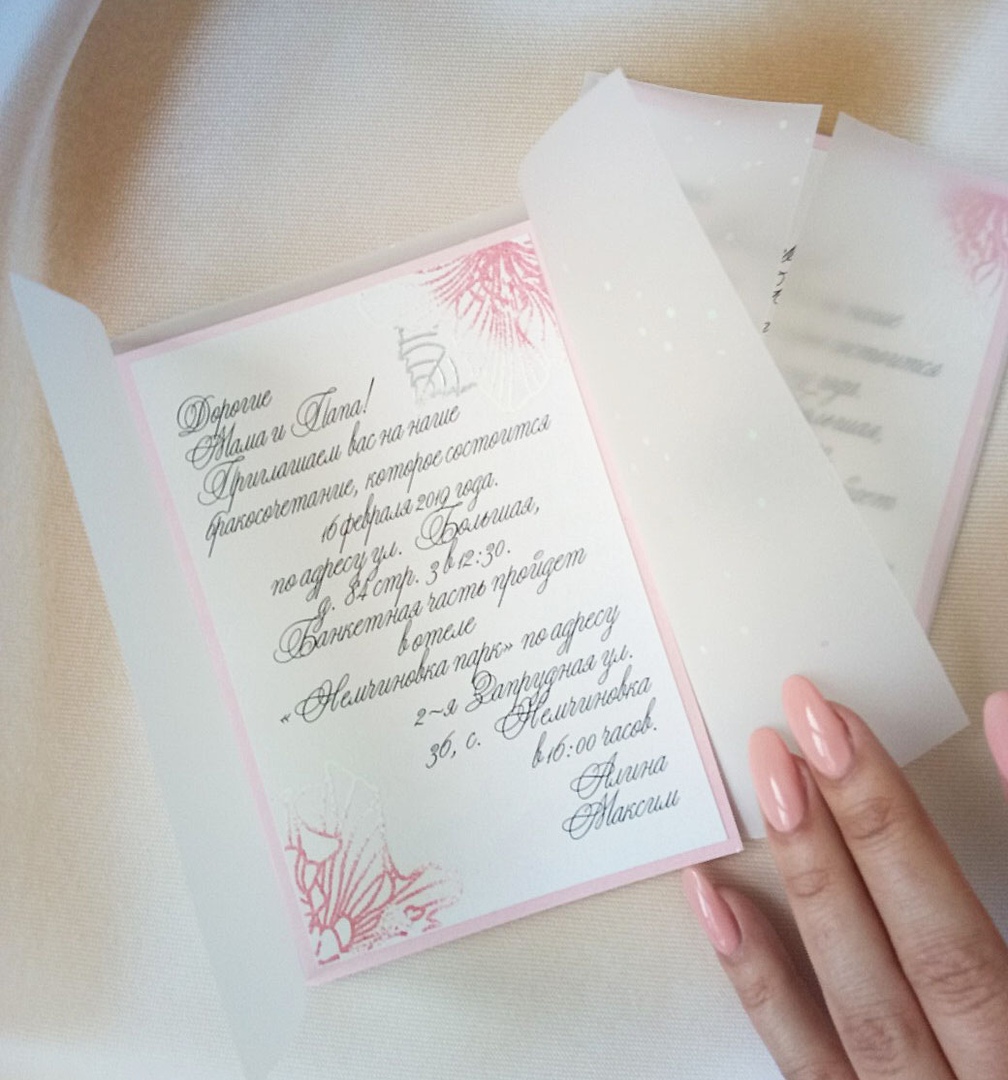 Дорогие
Мама и Папа!
Приглашаем вас на наше
бракосочетание, которое состоится
16 февраля 2019 года.
по адресу ул. Большая,
д. 84 стр. 3 в 12:30.
Банкетная часть пройдет
в отеле
«Немчиновка парк» по адресу
2~я Запрудная ул.
36, с. Немчиновка
в 16:00 часов.
Алина
Максим